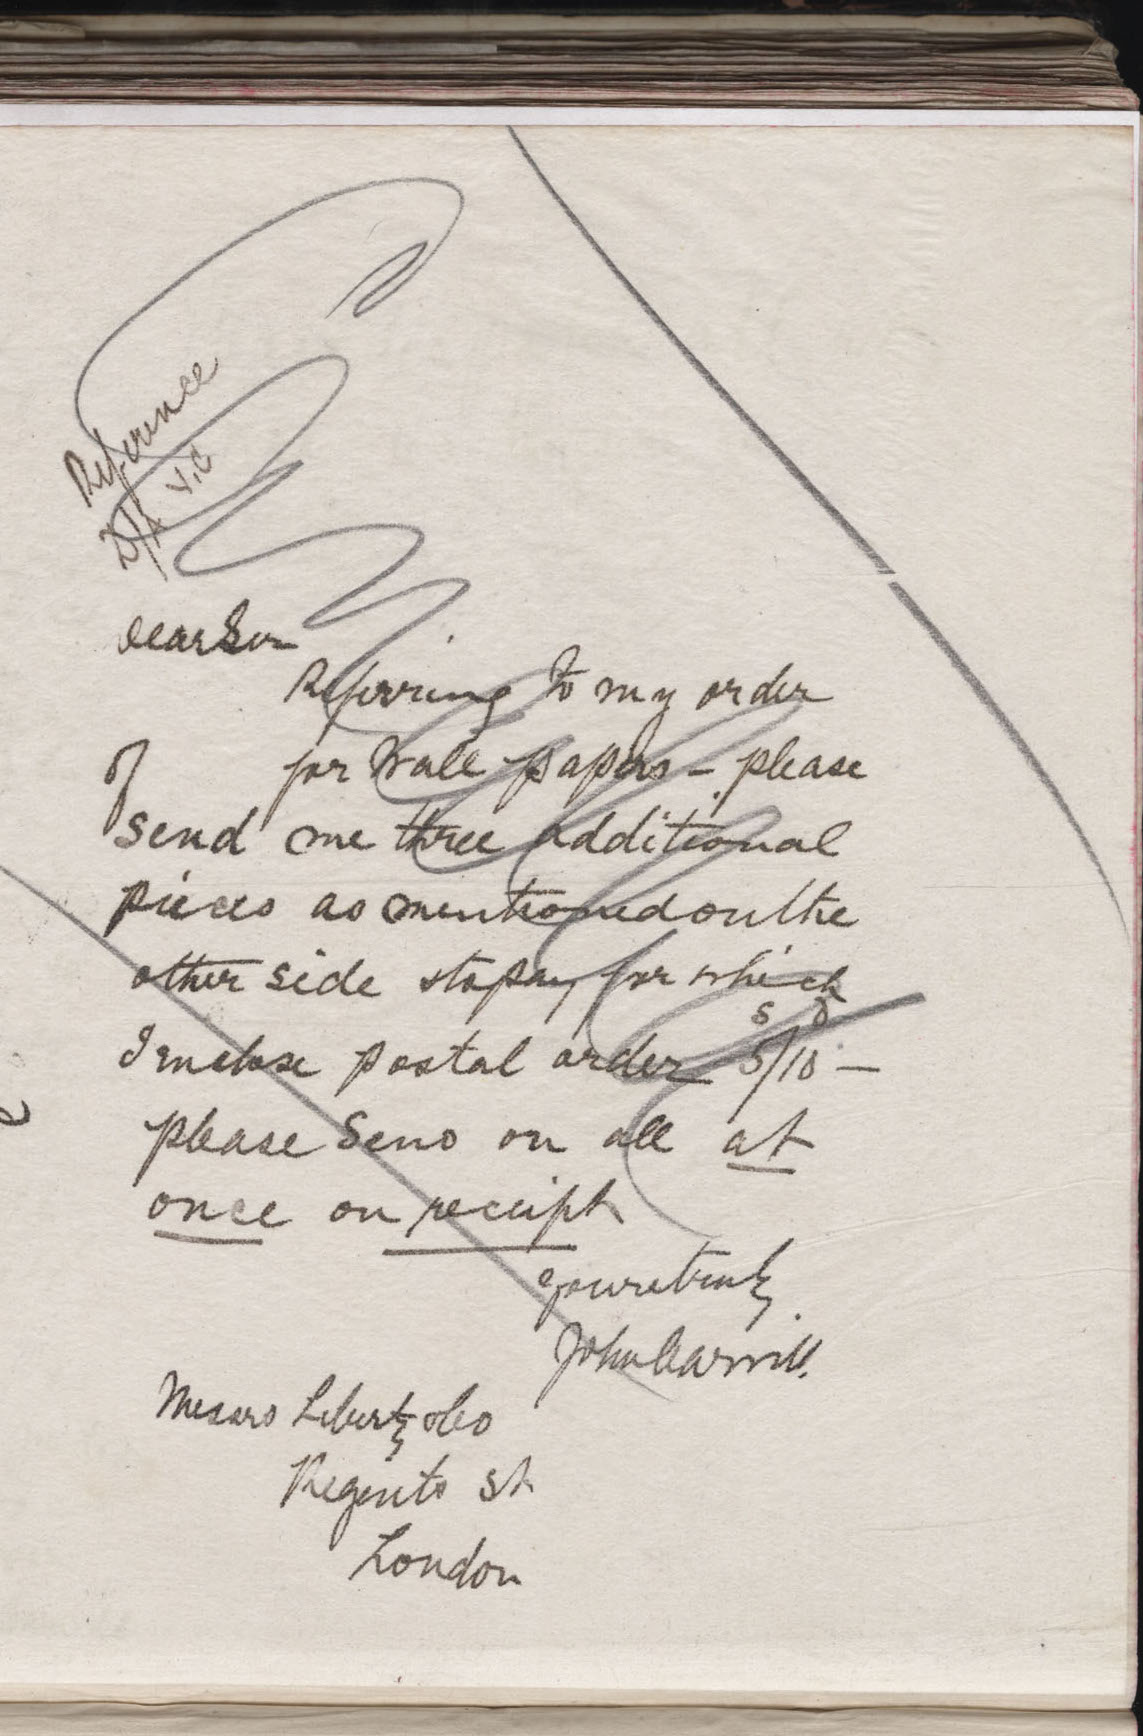 Reference
Dear Sir
Referring to my order
of for Wall papers - please
send me three additional
pieces as mentioned on the
other side to pay for which
s d
I enclose postal order 5/10 -
please send on all at
once on receipt
Yours truly
John Carvill.
Messrs Liberty & Co
Regents St
London